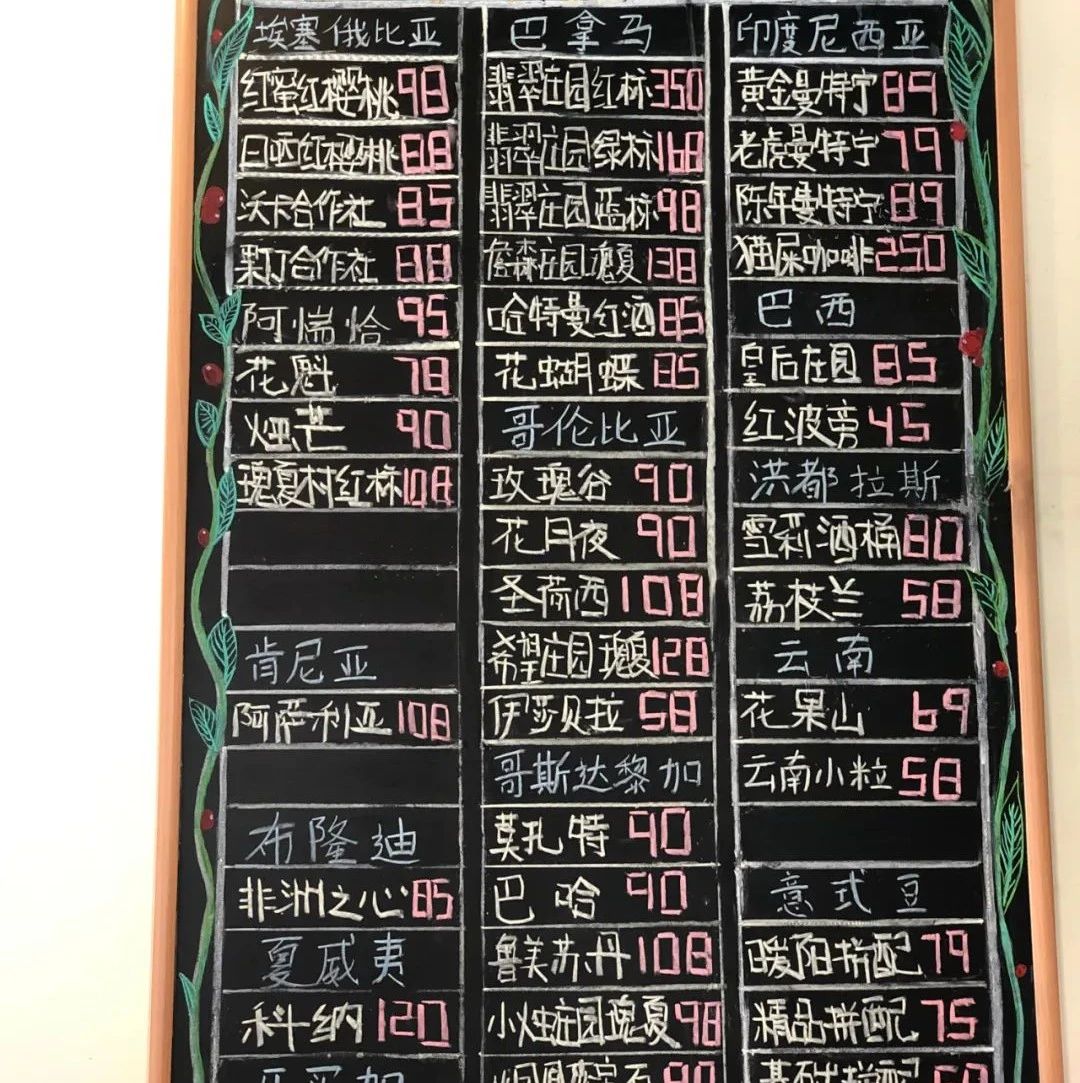 埃塞俄比亚
红蜜红樱桃 98
日晒红樱桃 88
沃卡合作社 85
果丁合作社 88
阿惴恰 95
花魁 78
烛芒 90
瑰夏村红标 108
肯尼亚
阿萨利亚 108
布隆迪
非洲之心 85
夏威夷
科纳 120
巴拿马
翡翠庄园红标 350
翡翠庄园绿标 168
翡翠庄园蓝标 98
詹森庄园瑰夏 138
哈特曼红酒 85
花蝴蝶 85
哥伦比亚
玫瑰谷 90
花月夜 90
圣荷西 108
希望庄园瑰夏 128
伊莎贝拉 58
哥斯达黎加
莫扎特 90
巴哈 90
鲁美苏丹 108
小烛庄园瑰夏 98
印度尼西亚
黄金曼特宁 89
老虎曼特宁 79
陈年曼特宁 89
猫屎咖啡 250
巴西
皇后庄园 85
红波旁 45
洪都拉斯
雪莉酒桶 80
荔枝兰 58
云南
花果山 69
云南小粒 58
意式豆
暖阳拼配 79
精品拼配 75